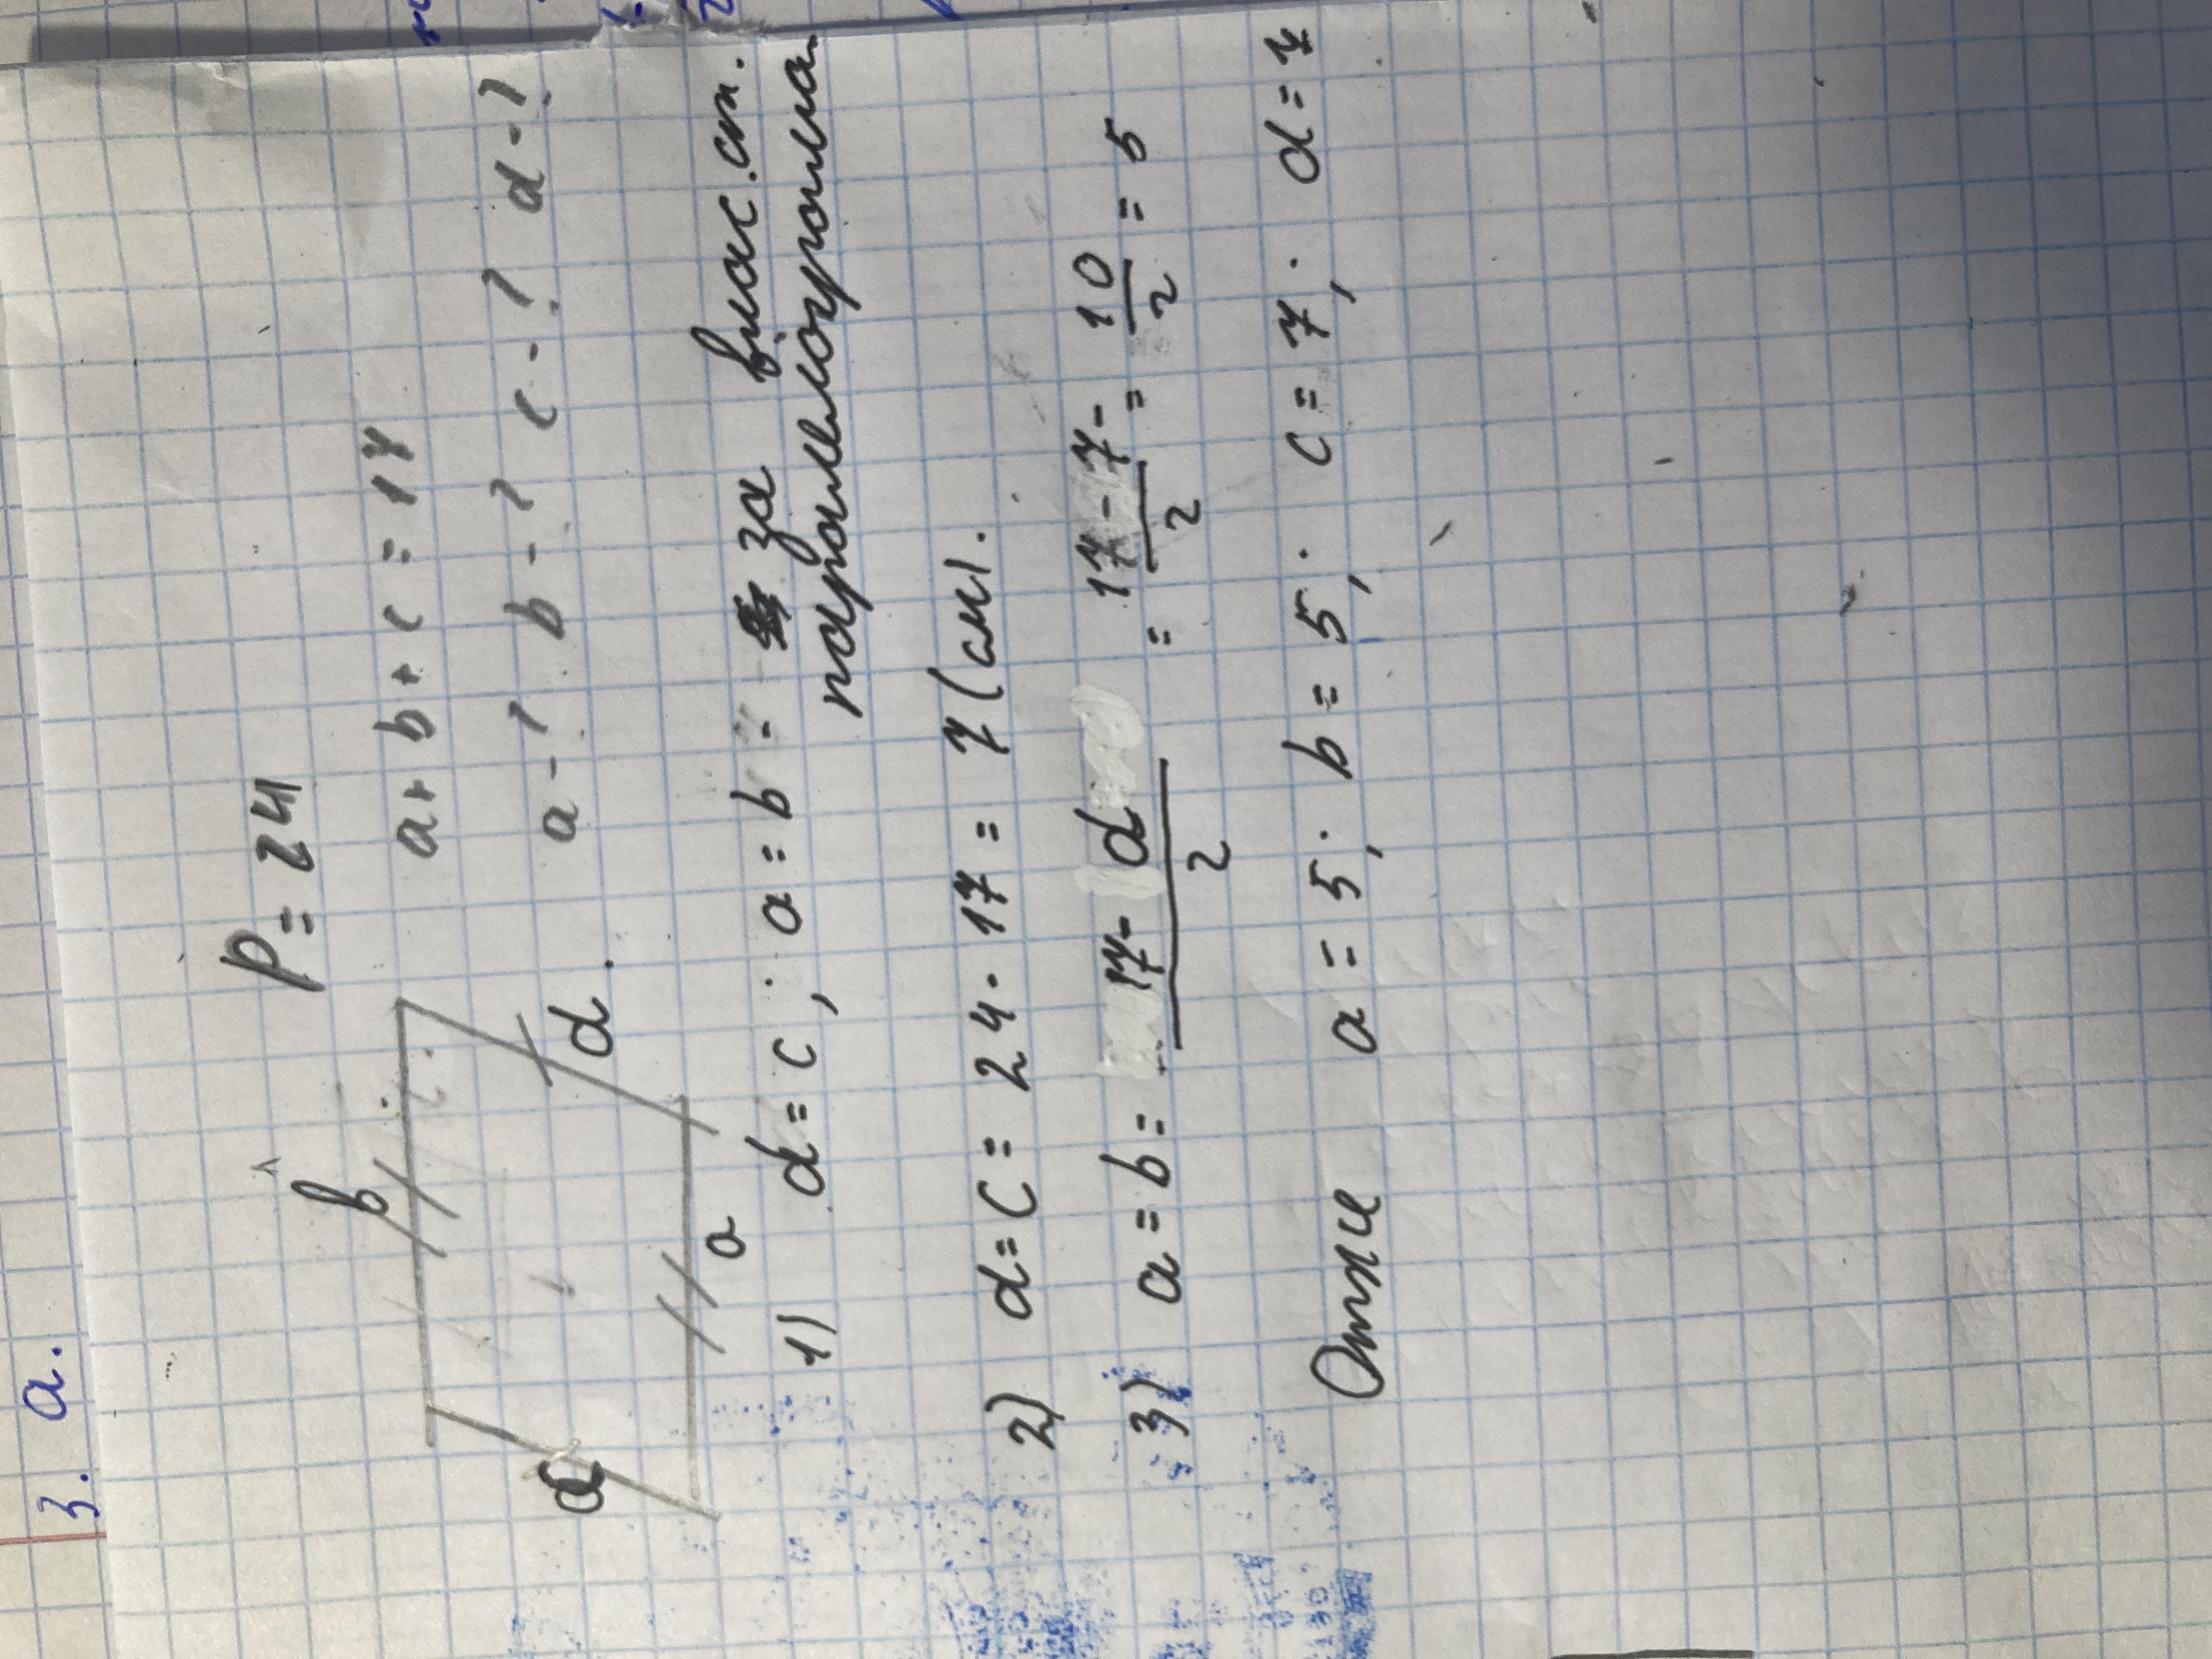 3. a.
P = 24
b
a + b + c = 17
a - ? b - ? c - ? d - ?
d
d.
a
1) d = c ; a = b - за влас. ст.
паралелограма.
2) d = c = 24 - 17 = 7 (см).
3) a = b = 17 - d / 2 = 17 - 7 - / 2 = 10 / 2 = 5
Отже a = 5; b = 5; c = 7; d = 7